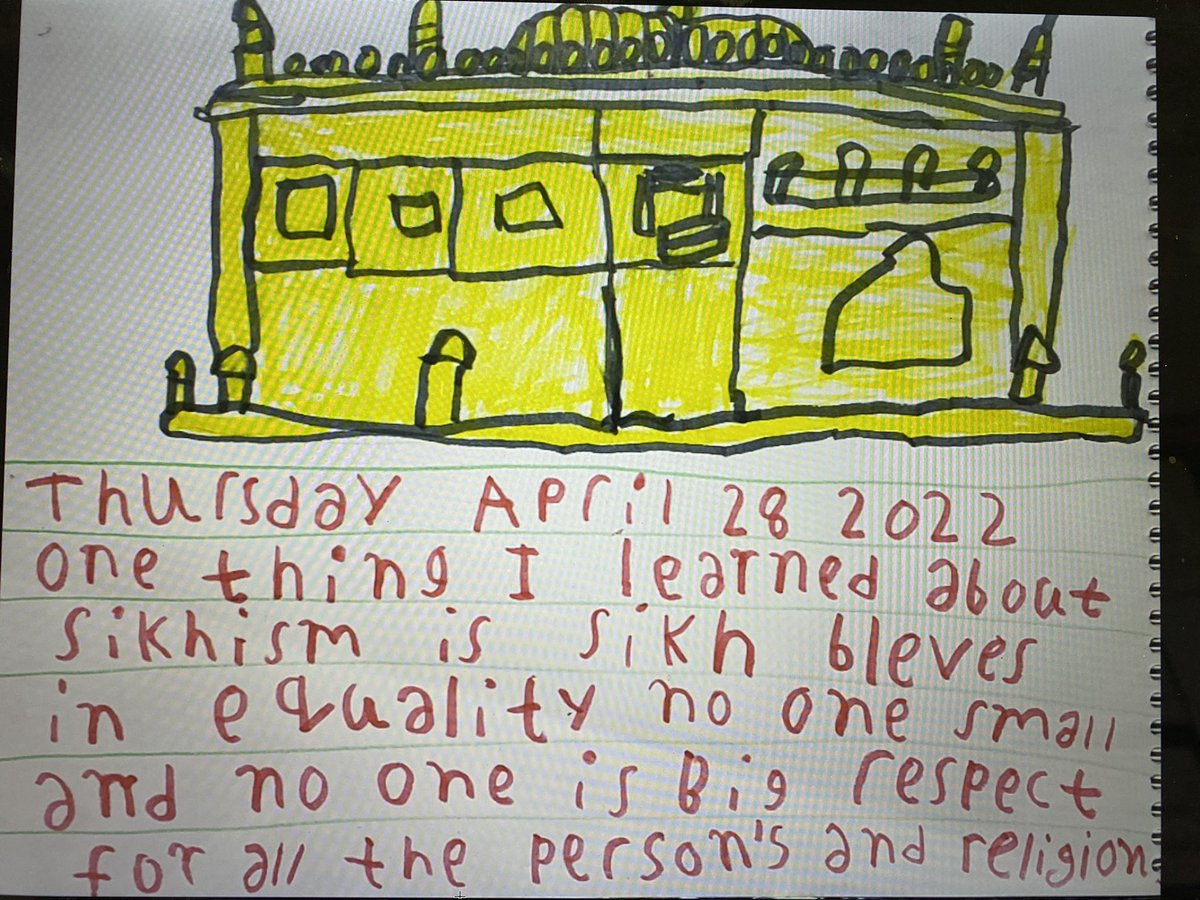 Thursday April 28 2022
one thing I learned about
Sikhism is Sikh bleves
in equality no one small
and no one is Big respect
for all the person's and religion.